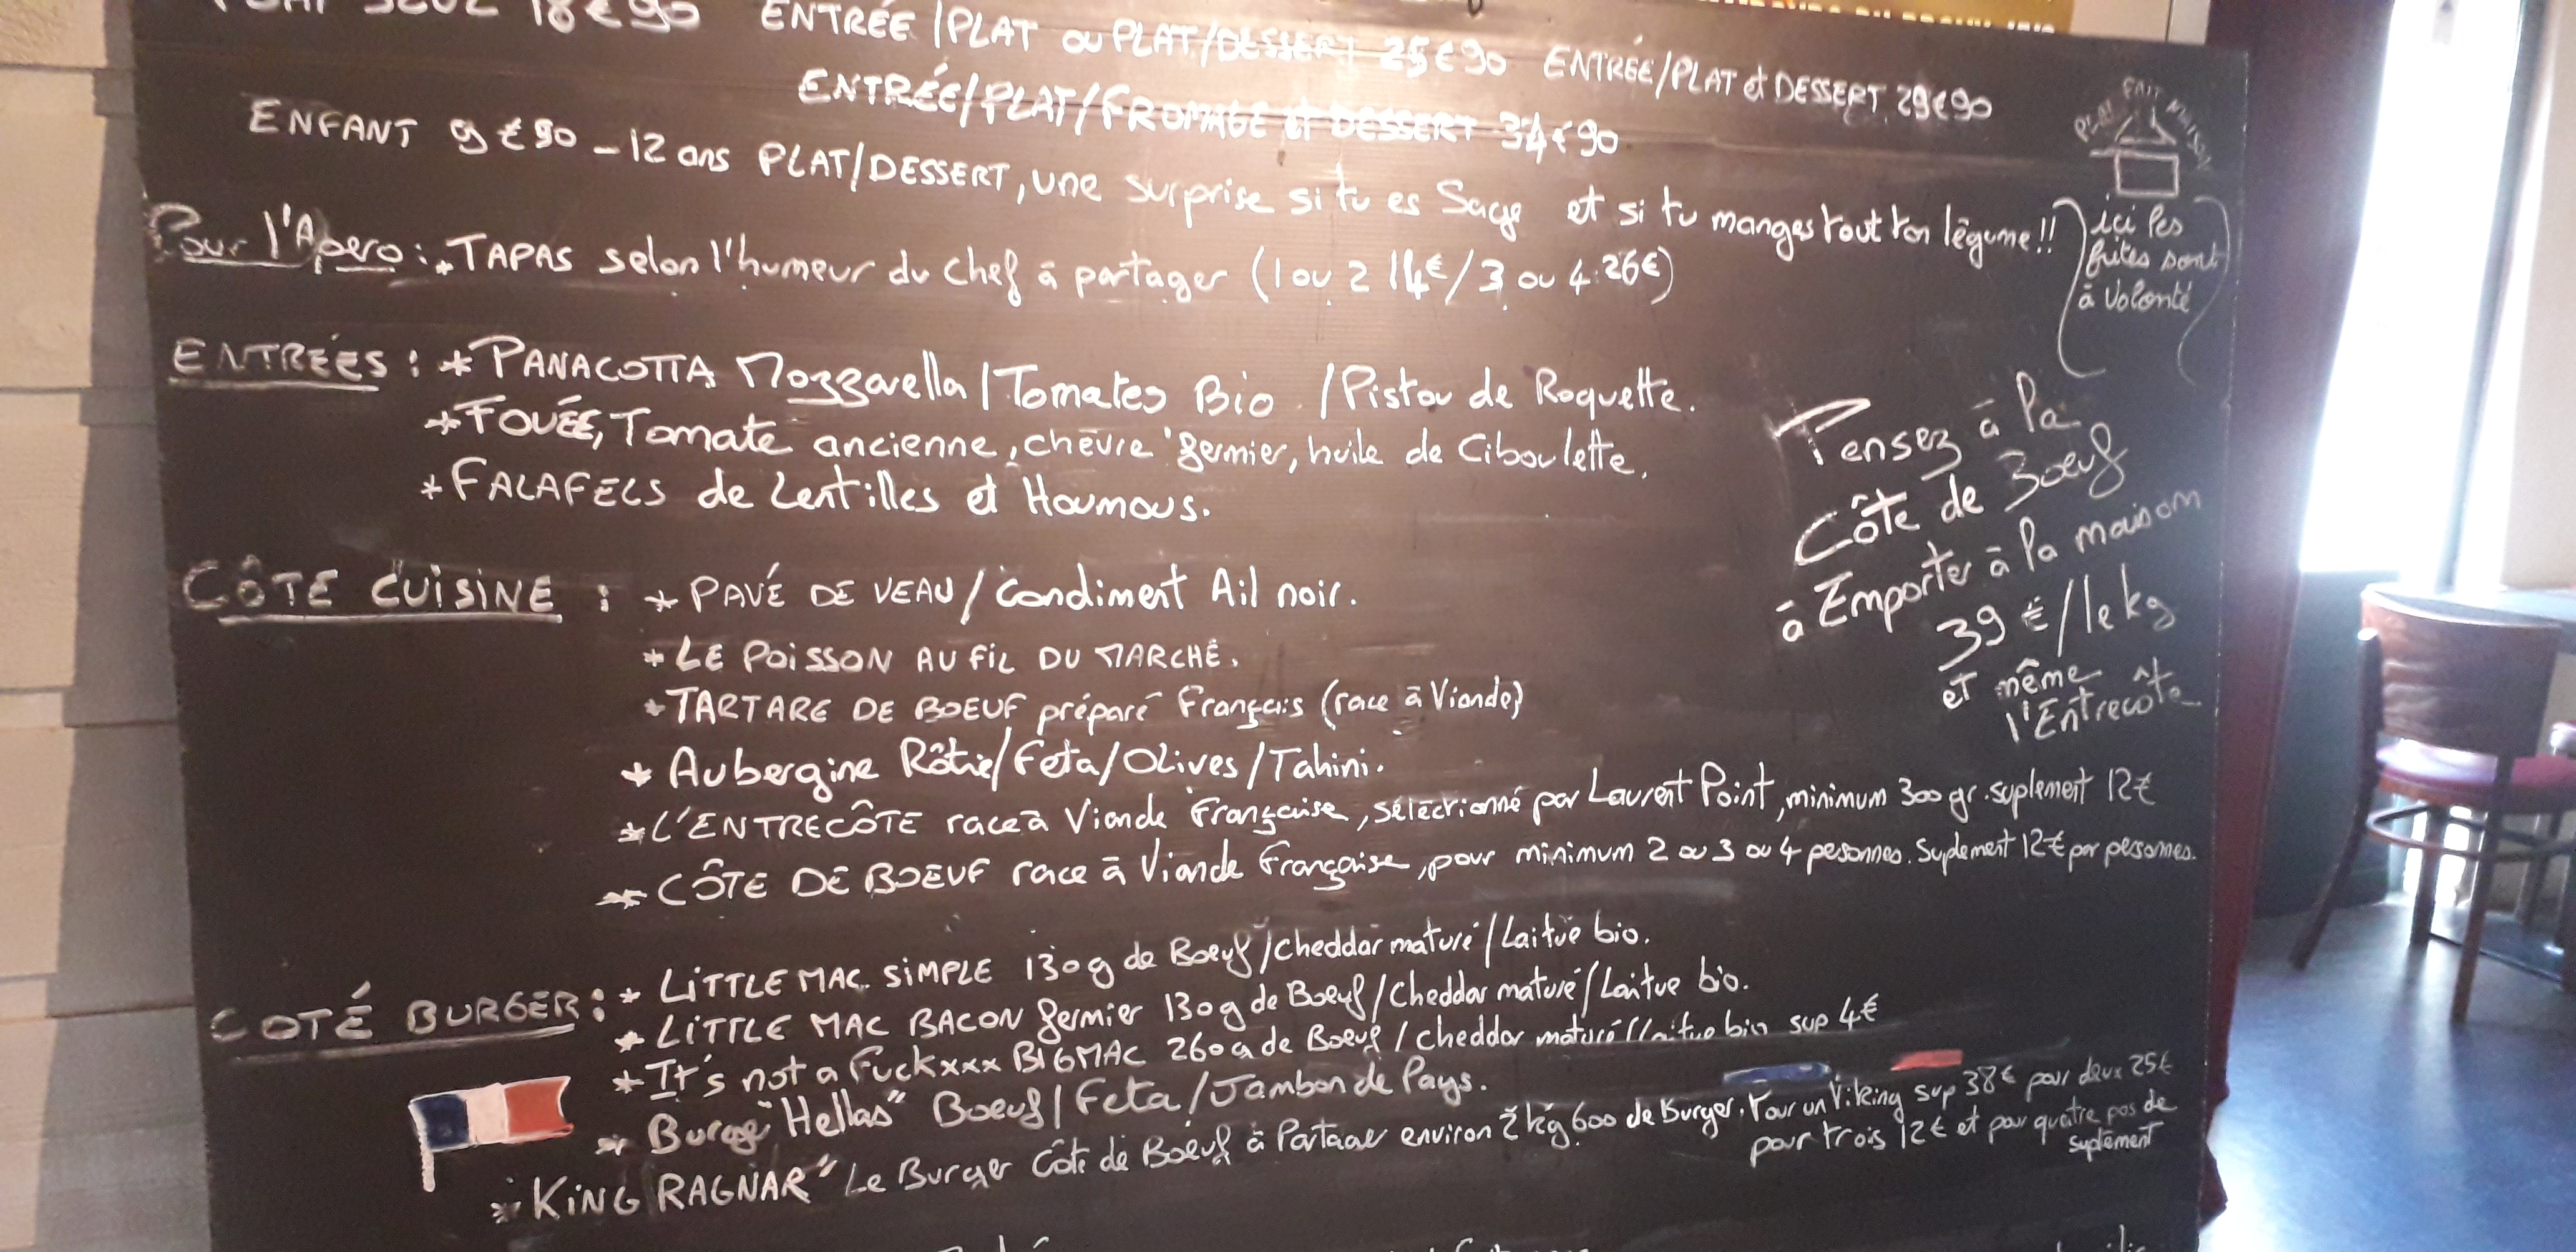 PLAT SEUL 18€90 ENTRÉE/PLAT ou PLAT/DESSERT 25€90 ENTRÉE/PLAT et DESSERT 29€90
ENTRÉE/PLAT/FROMAGE et DESSERT 34€90
ENFANT 9€90 -12 ans PLAT/DESSERT, une surprise si tu es Sage et si tu manges tout ton légume!!
PLAT FAIT MAISON
ici les
frites sont
à volonté
Pour l'Apero: *TAPAS selon l'humeur du chef à partager (1 ou 2 14€/3 ou 4 26€)
ENTRÉES: *PANACOTTA Mozzarella/Tomates Bio./Pistou de Roquette.
*FOUÉE, Tomate ancienne, chèvre fermier, huile de Ciboulette.
*FALAFELS de Lentilles et Houmous.
Pensez à la
Côte de Boeuf
à Emporter à la maison
39€/le kg
et même
l'Entrecôte
CÔTÉ CUISINE: *PAVÉ DE VEAU/Condiment Ail noir.
*LE POISSON AU FIL DU MARCHÉ.
*TARTARE DE BOEUF préparé Français (race à Viande)
*Aubergine Rôtie/Feta/Olives/Tahini.
*L'ENTRECÔTE race à Viande Française, sélectionné par Laurent Point, minimum 300gr. suplement 12€
*CÔTE DE BOEUF race à Viande Française, pour minimum 2 ou 3 ou 4 pesonnes. Suplement 12€ par personnes.
COTÉ BURGER: *LITTLE MAC. SIMPLE 130g de Boeuf/cheddar maturé/Laitue bio.
*LITTLE MAC BACON fermier 130g de Boeuf/Cheddar maturé/Laitue bio.
*It's not a Fuckxxx BIGMAC 260g de Boeuf/cheddar maturé/Laitue bio sup 4€
*Burger "Hellas" Boeuf/Feta/Jambon de Pays.
*KING RAGNAR" Le Burger Côte de Boeuf à Partager environ 2kg600 de Burger. Pour un Viking sup 38€ pour deux 25€
pour trois 12€ et pour quatre pas de
suplément